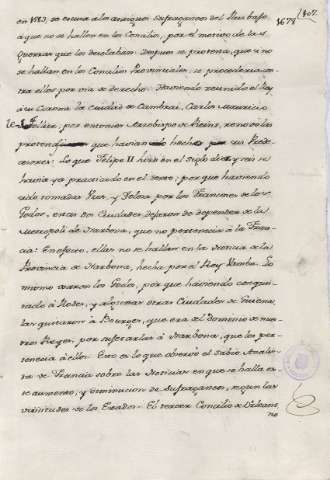 1678
407.
en 1583, se escusa a los antiguos sufraganeos del Rhin bajo
a que no se hallen en los Concilios, por el motivo de las
Guerras que los desolaban. Despues se protexta, que si no
se hallan en los Concilios Provinciales, se procederia con-
tra ellos por via de derecho. Haviendo reunido el Rey
a su Corona la Ciudad de Cambrai, Carlos Mauricio
le Tellier, por entonces Arzobispo de Reims, renovó las
protextas que havian hecho sus Prede-
cesores. Lo que Felipe II hizo en el siglo diez y seis se
havia ya practicado en el sexto: por que haviendo
sido tomadas por los Franceses de los
Godos, estas dos Ciudades dejaron de depender de la
Metropoli de Narbona, que no pertenecia a la Fran-
cia: En efecto, ellas no se hallan en la Noticia de la
Provincia de Narbona, hecha por el Rey Wamba. Lo
mismo hicieron los Godos, por que haviendo conquis-
tado à Rodes, y algunas otras Ciudades de Guiena,
las quitaron à Bourges, que era del Dominio de nues-
tros Reyes, por sujetarlas à Narbona, que les per-
tenecia à ellos. Esto es lo que observó el sabio Analis-
ta de Francia sobre las Noticias en que se halla es-
te aumento, y diminucion de Sufraganeos, segun las
vicisitudes de los Estados. El tercer Concilio de Orleans
no